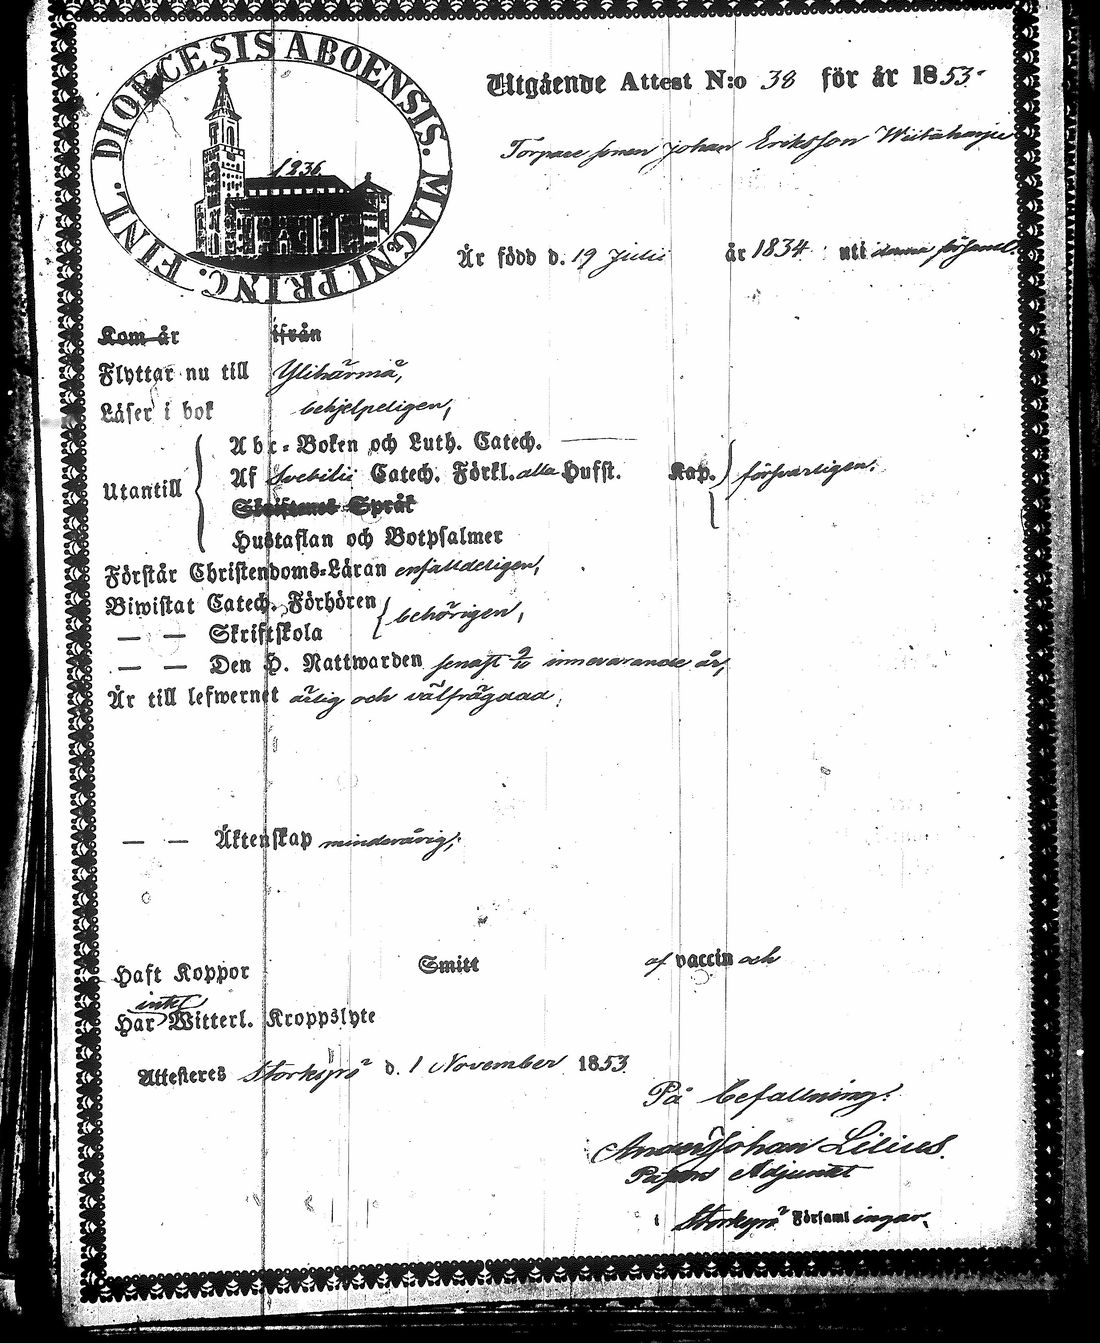 DIOECESIS ABOENSIS. MAGNI PRINC. FINL.
1836
Utgående Attest N:o 38 för år 1853.
Torpare sonen Johan Eriksson Wiitaharju
Är född d. 19 Julii år 1834 uti denna församl.
Kom år ifrån
Flyttar nu till Ylihärmä,
Läser i bok behjelpeligen,
Utantill
Abc-Boken och Luth. Catech.
Af Svebilii Catech. Förkl. alla Hufst. Kap. försvarligen.
Skriftenes Språk
Hustaflan och Botpsalmer
Förstår Christendoms-Läran enfalldeligen,
Biwistat Catech. Förhören behörigen,
— — Skriftskola
— — Den H. Nattwarden senast 9/10 innevarande år,
Är till lefwernet ärlig och välfrägdad,
— — Äktenskap minderårig,
Haft Koppor Smitt af vaccin och
intet
Har Witterl. Kroppslyte
Attesteres Storkyrå d. 1 November 1853
På befallning:
Anders Johan Lilius.
Pastors Adjunct
i Storkyrå Församlingar.